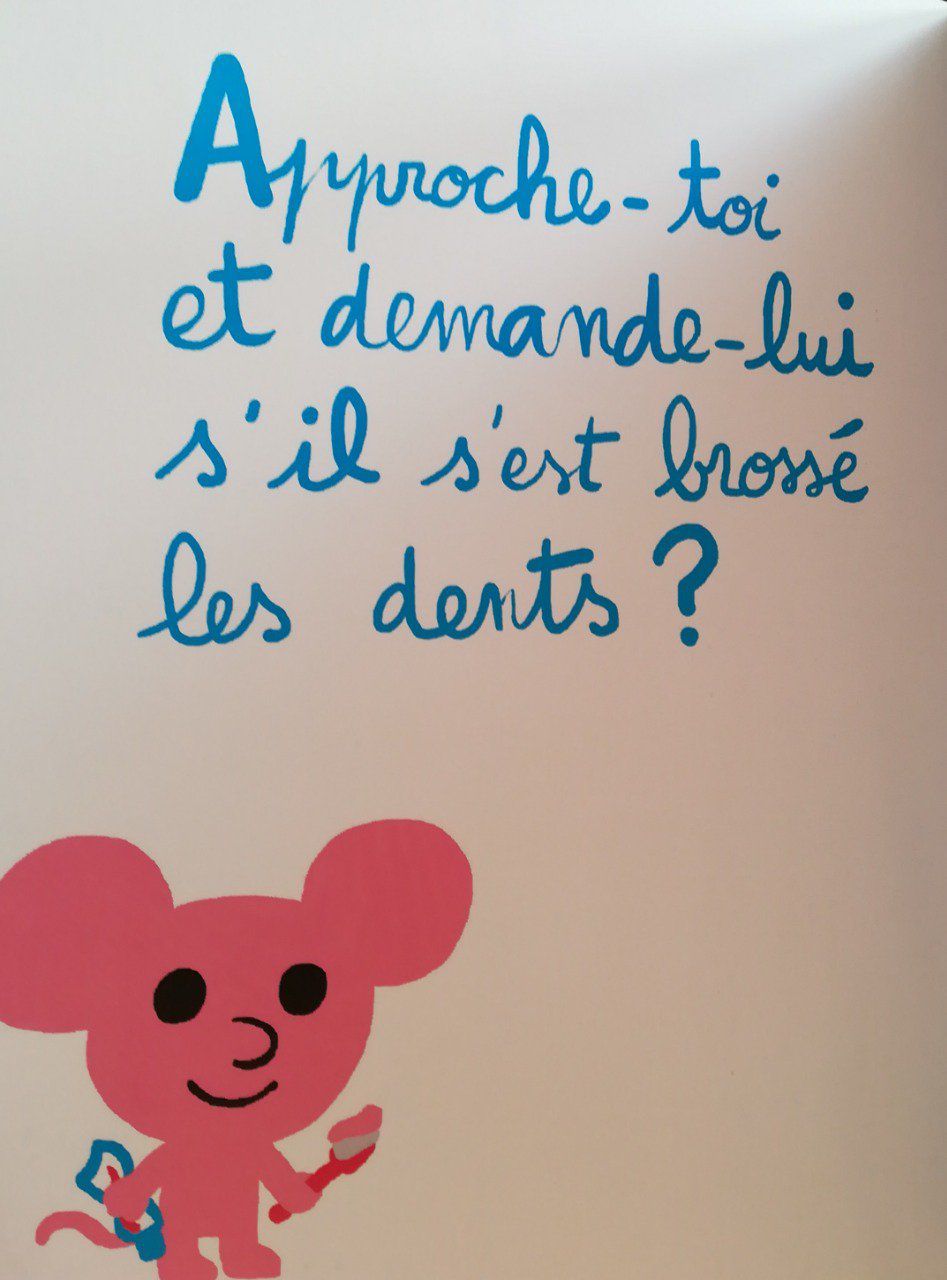 Approche-toi
et demande-lui
s'il s'est brossé
les dents ?